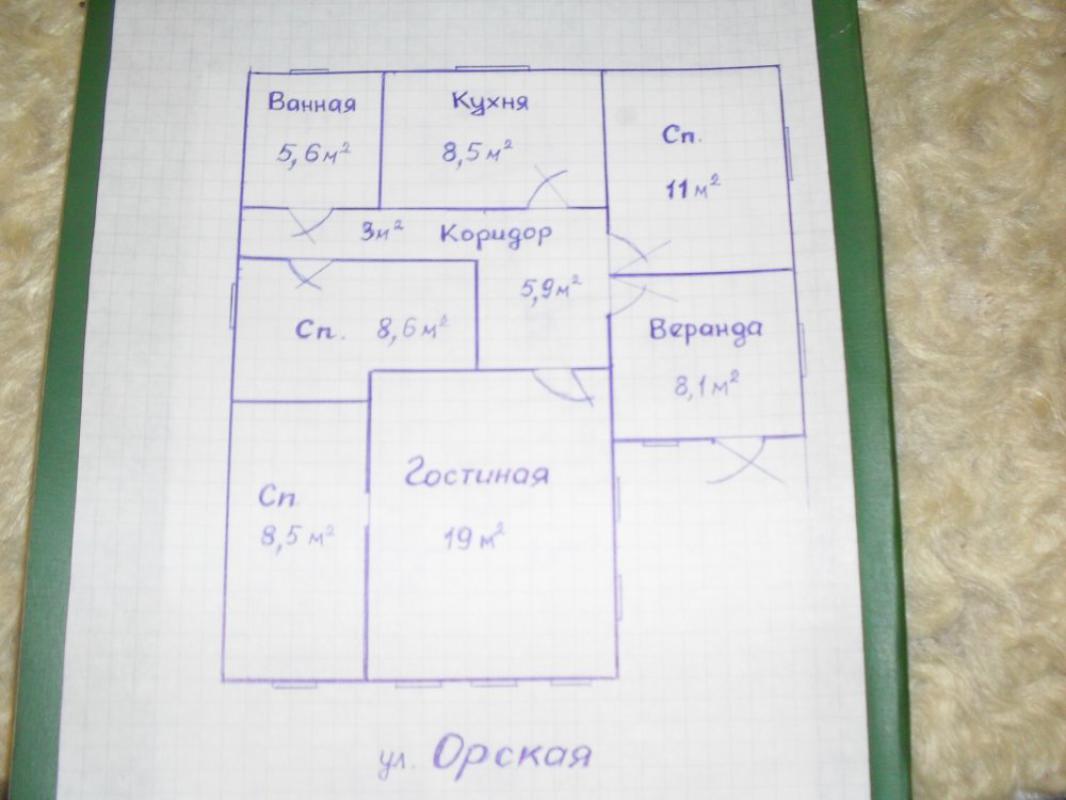 Ванная
5,6 м²
Кухня
8,5 м²
Сп.
11 м²
3м² Коридор
5,9м²
Сп. 8,6 м²
Веранда
8,1 м²
Гостиная
19 м²
Сп
8,5 м²
ул. Орская